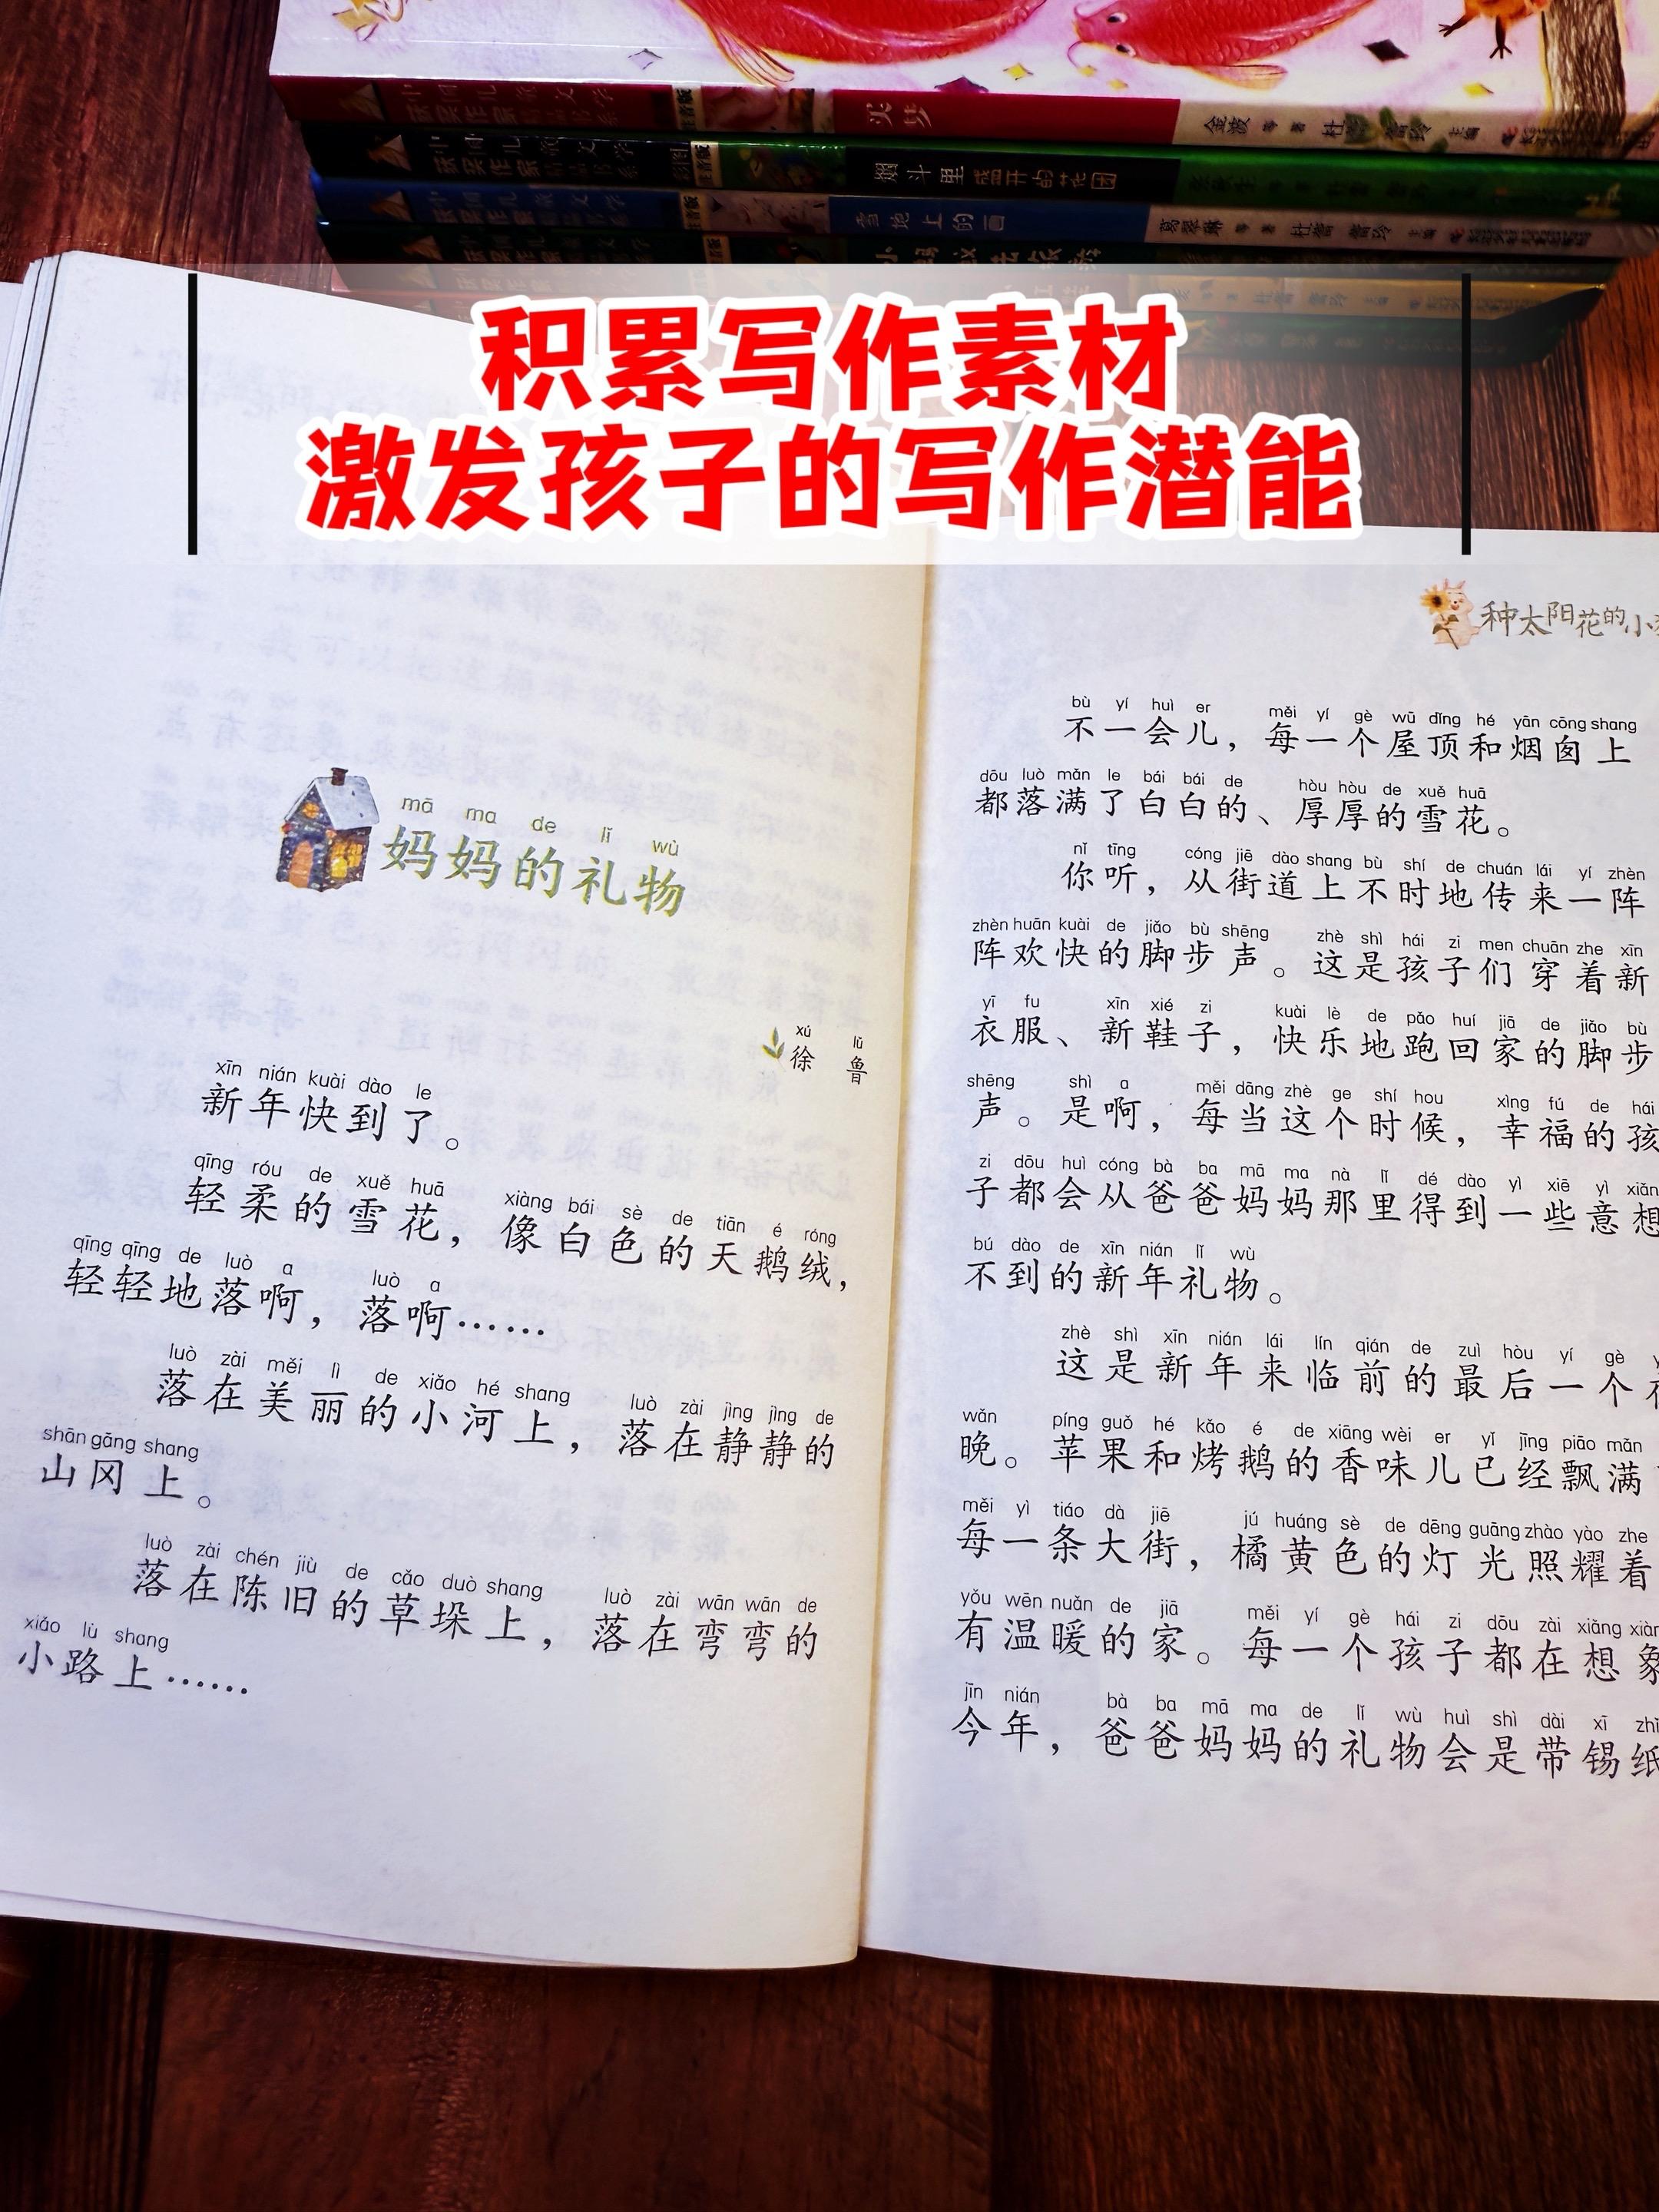 买梦
金波 等 著
主编
烟斗里盛开的花园
雪地上的画
葛翠琳 等 著
主编
积累写作素材
激发孩子的写作潜能
mā ma de lǐ wù
妈妈的礼物
xú lǔ
徐 鲁
xīn nián kuài dào le
新年快到了。
qīng róu de xuě huā xiàng bái sè de tiān é róng
轻柔的雪花，像白色的天鹅绒，
qīng qīng de luò a luò a
轻轻地落啊，落啊……
luò zài měi lì de xiǎo hé shang luò zài jìng jìng de
落在美丽的小河上，落在静静的
shān gāng shang
山冈上。
luò zài chén jiù de cǎo duò shang luò zài wān wān de
落在陈旧的草垛上，落在弯弯的
xiǎo lù shang
小路上……
种太阳花的小
bù yí huì er měi yí gè wū dǐng hé yān cōng shang
不一会儿，每一个屋顶和烟囱上
dōu luò mǎn le bái bái de hòu hòu de xuě huā
都落满了白白的、厚厚的雪花。
nǐ tīng cóng jiē dào shang bù shí de chuán lái yí zhèn
你听，从街道上不时地传来一阵
zhèn huān kuài de jiǎo bù shēng zhè shì hái zi men chuān zhe xīn
阵欢快的脚步声。这是孩子们穿着新
yī fu xīn xié zi kuài lè de pǎo huí jiā de jiǎo bù
衣服、新鞋子，快乐地跑回家的脚步
shēng shì a měi dāng zhè ge shí hou xìng fú de hái
声。是啊，每当这个时候，幸福的孩
zi dōu huì cóng bà ba mā ma nà lǐ dé dào yì xiē yì xiǎng
子都会从爸爸妈妈那里得到一些意想
bú dào de xīn nián lǐ wù
不到的新年礼物。
zhè shì xīn nián lái lín qián de zuì hòu yí gè
这是新年来临前的最后一个
wǎn píng guǒ hé kǎo é de xiāng wèi er yǐ jīng piāo mǎn
晚。苹果和烤鹅的香味儿已经飘满
měi yì tiáo dà jiē jú huáng sè de dēng guāng zhào yào zhe
每一条大街，橘黄色的灯光照耀着
yǒu wēn nuǎn de jiā měi yí gè hái zi dōu zài xiǎng xiàn
有温暖的家。每一个孩子都在想象
jīn nián bà ba mā ma de lǐ wù huì shì dài xī zhǐ
今年，爸爸妈妈的礼物会是带锡纸